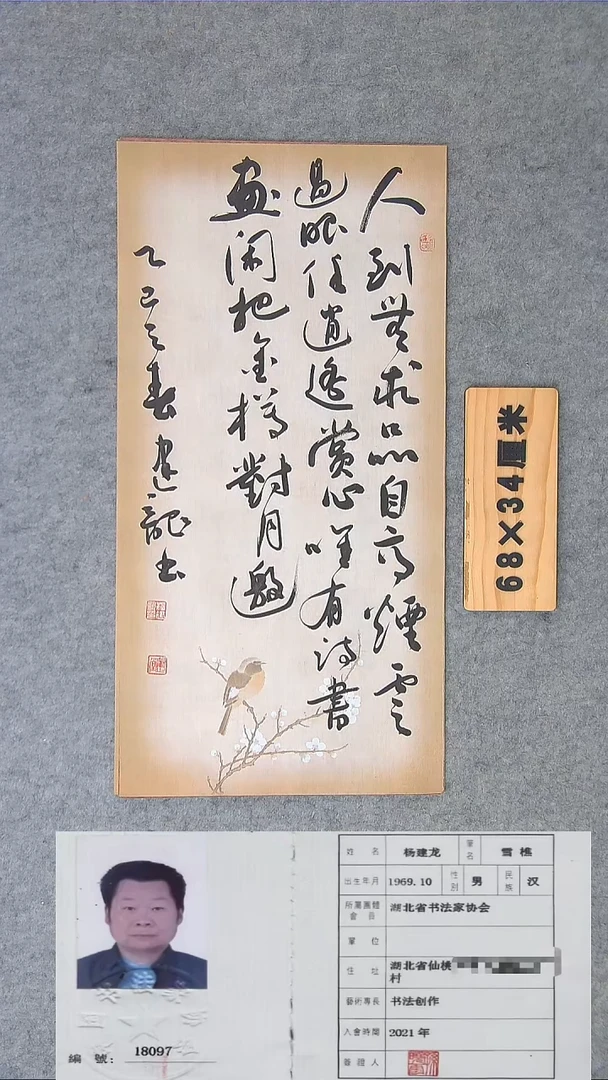 人到無求品自高煙雲
過眼任逍遙賞心唯有詩書
畫閑把金樽對月邀
乙巳之春建龍書
68×34厘米
姓名 杨建龙 署名 雪樵
出生年月 1969.10 性别 男 民族 汉
所屬團體會員 湖北省书法家协会
單位
住址 湖北省仙桃
村
藝術專長 书法创作
入會時間 2021年
簽證人
編號: 18097